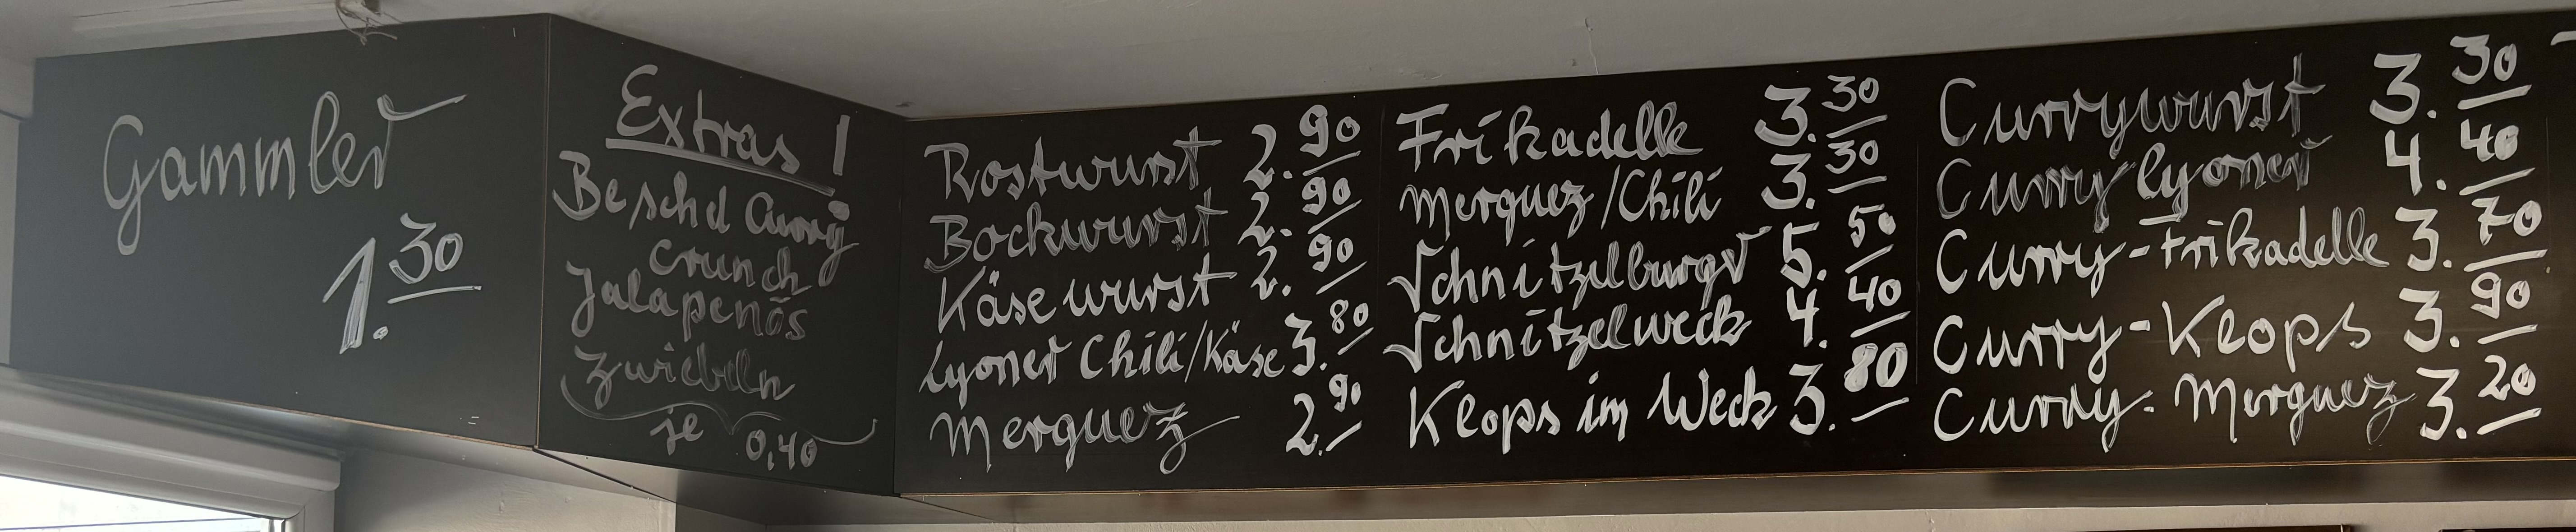 Gammler
1.30
Extras!
Beschd Curry
Crunch
Jalapenõs
Zwiebeln
je 0,40
Rostwurst 2.90
Bockwurst 2.90
Käsewurst 2.90
Lyoner Chili/Käse 3.80
Merguez 2.90
Frikadelle 3.30
Merquez/Chili 3.30
Schnitzelburgr 5.50
Schnitzelweck 4.40
Klops im Weck 3.80
Currywurst 3.30
Currylyoner 4.40
Curry-Frikadelle 3.70
Curry-Klops 3.90
Curry-Merguez 3.20